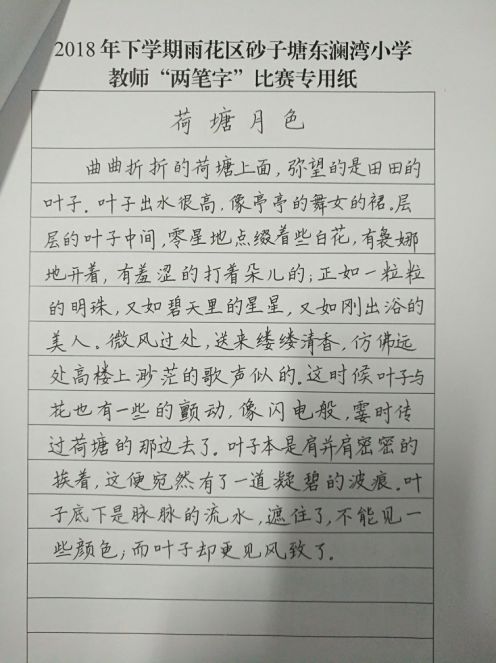 2018年下学期雨花区砂子塘东澜湾小学
教师“两笔字”比赛专用纸
荷塘月色
曲曲折折的荷塘上面，弥望的是田田的
叶子。叶子出水很高，像亭亭的舞女的裙。层
层的叶子中间，零星地点缀着些白花，有袅娜
地开着，有羞涩的打着朵儿的；正如一粒粒
的明珠，又如碧天里的星星，又如刚出浴的
美人。微风过处，送来缕缕清香，仿佛远
处高楼上渺茫的歌声似的。这时候叶子与
花也有一些的颤动，像闪电般，霎时传
过荷塘的那边去了。叶子本是肩并肩密密的
挨着，这便宛然有了一道凝碧的波痕。叶
子底下是脉脉的流水，遮住了，不能见一
些颜色；而叶子却更见风致了。